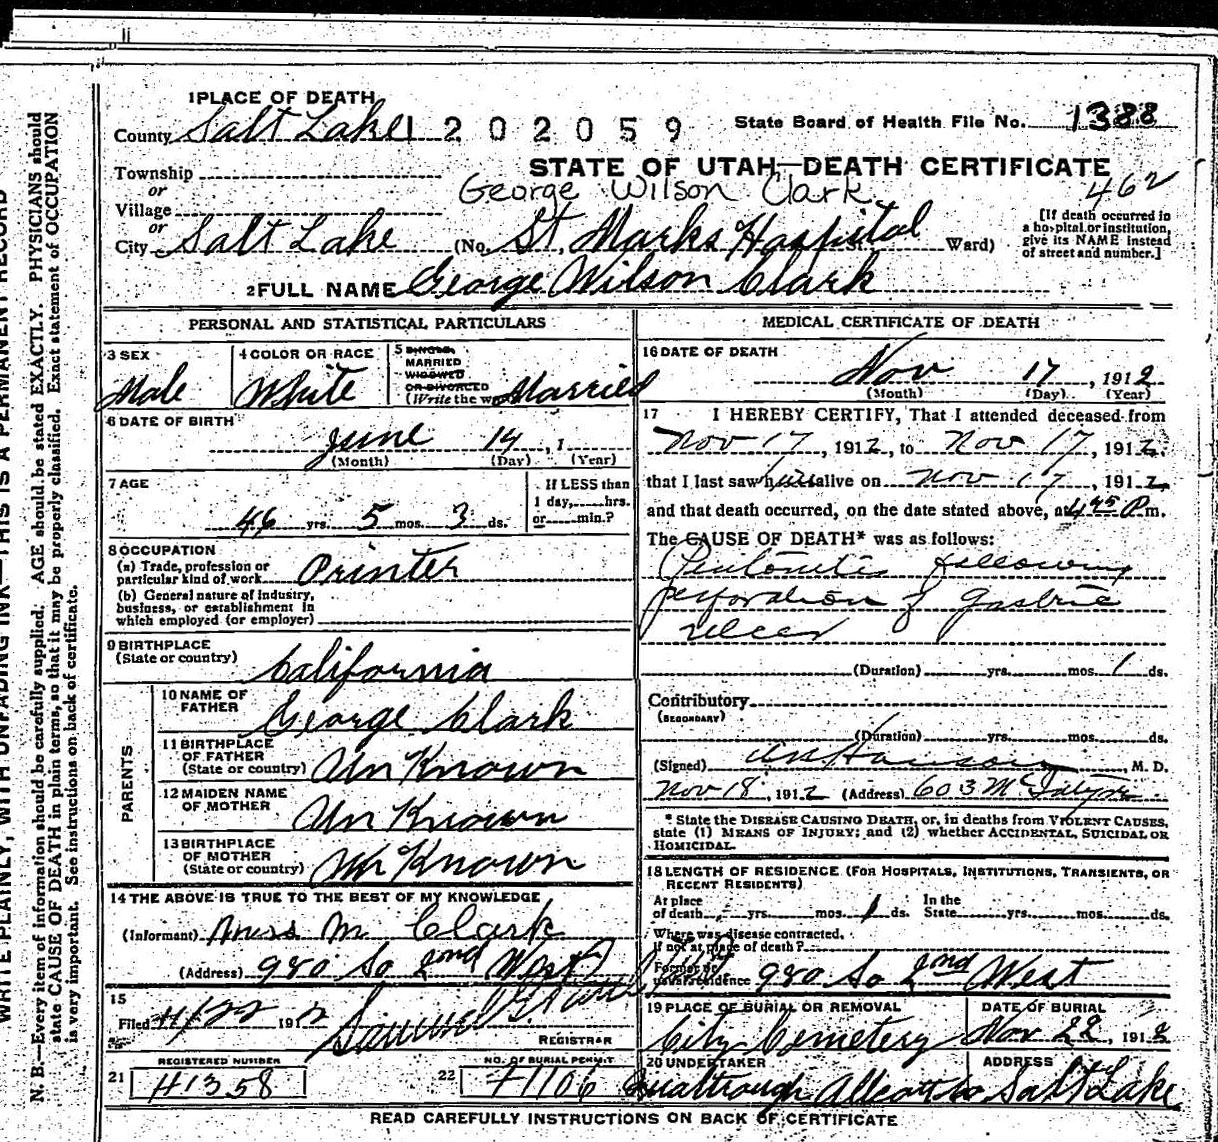 1 PLACE OF DEATH
County Salt Lake 1202059 State Board of Health File No. 1388
STATE OF UTAH—DEATH CERTIFICATE
Township
or
George Wilson Clark 462
Village
or
City Salt Lake (No. St. Marks Hospital Ward)
[If death occurred in
a hospital or institution,
give its NAME instead
of street and number.]
2 FULL NAME George Wilson Clark
PERSONAL AND STATISTICAL PARTICULARS
3 SEX
Male
4 COLOR OR RACE
White
5 SINGLE,
MARRIED
WIDOWED
OR DIVORCED
(Write the Married
6 DATE OF BIRTH
June 14, 1
(Month) (Day) (Year)
7 AGE
46 yrs. 5 mos. 3 ds.
If LESS than
1 day, hrs.
or min.?
8 OCCUPATION
(a) Trade, profession or
particular kind of work Printer
(b) General nature of industry,
business, or establishment in
which employed (or employer)
9 BIRTHPLACE
(State or country) California
PARENTS
10 NAME OF
FATHER George Clark
11 BIRTHPLACE
OF FATHER
(State or country) Un Known
12 MAIDEN NAME
OF MOTHER Un Known
13 BIRTHPLACE
OF MOTHER
(State or country) Un Known
14 THE ABOVE IS TRUE TO THE BEST OF MY KNOWLEDGE
(Informant) M Clark
(Address) 980 So 2nd West
15
Filed 11/22 1912 Samuel G.
REGISTRAR
REGISTERED NUMBER
21 H1358
NO. OF BURIAL PERMIT
22 H1106
MEDICAL CERTIFICATE OF DEATH
16 DATE OF DEATH
Nov 17, 1912
(Month) (Day) (Year)
17 I HEREBY CERTIFY, That I attended deceased from
Nov 17, 1912, to Nov 17, 1912.
that I last saw him alive on Nov 17, 1912,
and that death occurred, on the date stated above, at 4 45 P m.
The CAUSE OF DEATH* was as follows:
Peritonitis following
perforation of Gastric
ulcer
(Duration) yrs. mos. 1 ds.
Contributory
(SECONDARY)
(Duration) yrs. mos. ds.
(Signed) Hanson, M. D.
Nov 18, 1912 (Address) 603 McIntyre
* State the DISEASE CAUSING DEATH, or, in deaths from VIOLENT CAUSES,
state (1) MEANS OF INJURY; and (2) whether ACCIDENTAL, SUICIDAL OR
HOMICIDAL.
18 LENGTH OF RESIDENCE (FOR HOSPITALS, INSTITUTIONS, TRANSIENTS, OR
RECENT RESIDENTS)
At place
of death yrs. mos. 1 ds.
In the
State yrs. mos. ds.
Where was disease contracted,
if not at place of death?
Former or
usual residence 980 So 2nd West
19 PLACE OF BURIAL OR REMOVAL
City Cemetery
DATE OF BURIAL
Nov 22, 1912
20 UNDERTAKER ADDRESS
Salt Lake
READ CAREFULLY INSTRUCTIONS ON BACK OF CERTIFICATE
WRITE PLAINLY, WITH UNFADING INK—THIS IS A PERMANENT RECORD
N. B.—Every item of information should be carefully supplied. AGE should be stated EXACTLY. PHYSICIANS should
state CAUSE OF DEATH in plain terms, so that it may be properly classified. Exact statement of OCCUPATION
is very important. See instructions on back of certificate.